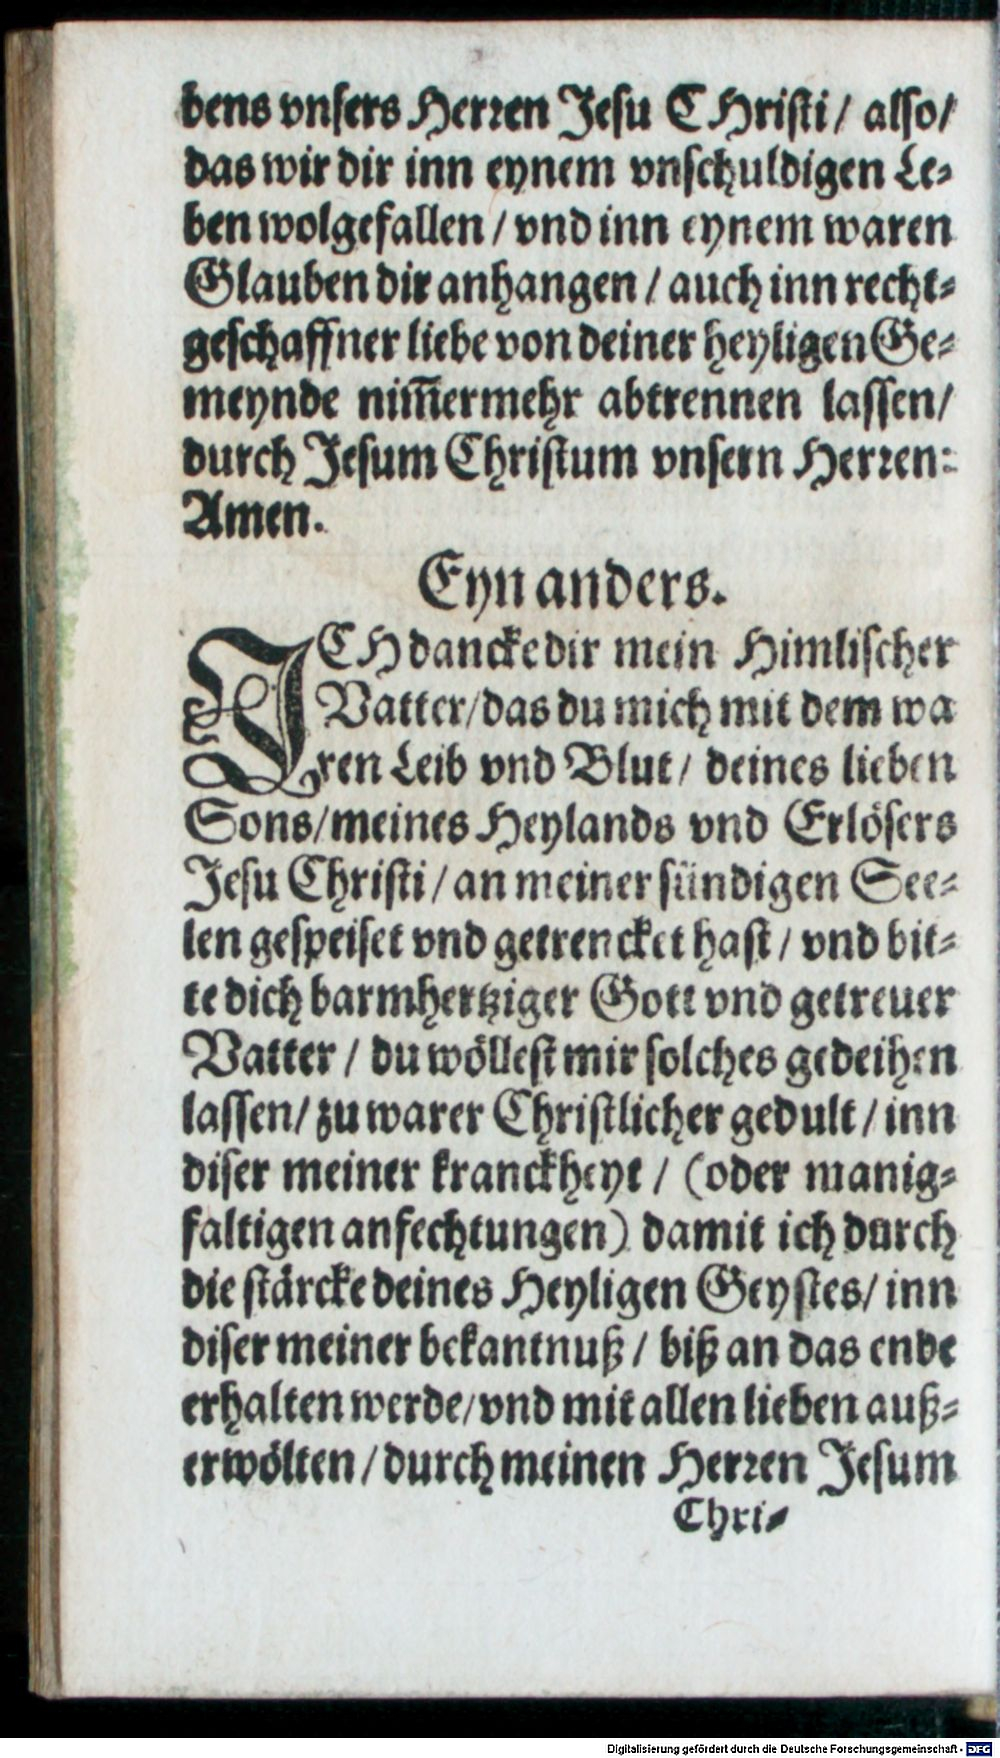 bens vnsers Herren Jesu CHristi / also /
das wir dir inn eynem vnschuldigen Le-
ben wolgefallen / vnd inn eynem waren
Glauben dir anhangen / auch inn recht-
geschaffner liebe von deiner heyligen Ge-
meynde nim̃ermehr abtrennen lassen /
durch Jesum Christum vnsern Herren:
Amen.
Eyn anders.
ICH dancke dir mein Himlischer
Vatter / das du mich mit dem wa
ren Leib vnd Blut / deines lieben
Sons / meines Heylands vnd Erlösers
Jesu Christi / an meiner sündigen See-
len gespeiset vnd getrencket hast / vnd bit-
te dich barmhertziger Gott vnd getreuer
Vatter / du wöllest mir solches gedeihen
lassen / zu warer Christlicher gedult / inn
diser meiner kranckheyt / (oder manig-
faltigen anfechtungen) damit ich durch
die stärcke deines Heyligen Geystes / inn
diser meiner bekantnuß / biß an das ende
erhalten werde / vnd mit allen lieben auß-
erwölten / durch meinen Herren Jesum
Chri-
Digitalisierung gefördert durch die Deutsche Forschungsgemeinschaft - DFG